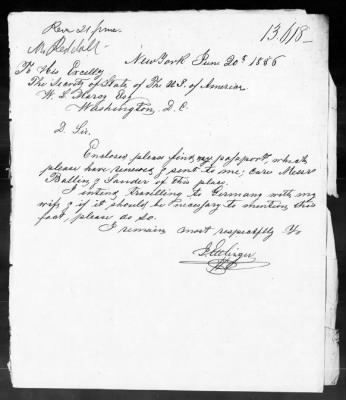 Rec 21 June
13.618-
New York June 20th 1886
To His Excelly
The Secrety of State of The U.S. of America
W. S. Esq
Washington, D. C.
D. Sir.
Enclosed please find my passport, which
please have renewed & sent to me, care Messr
Ballin & Sander of this place.
I intend travelling to Germany with my
wife & if it should be necessary to mention this
fact, please do so.
I remain most respectfly Yo